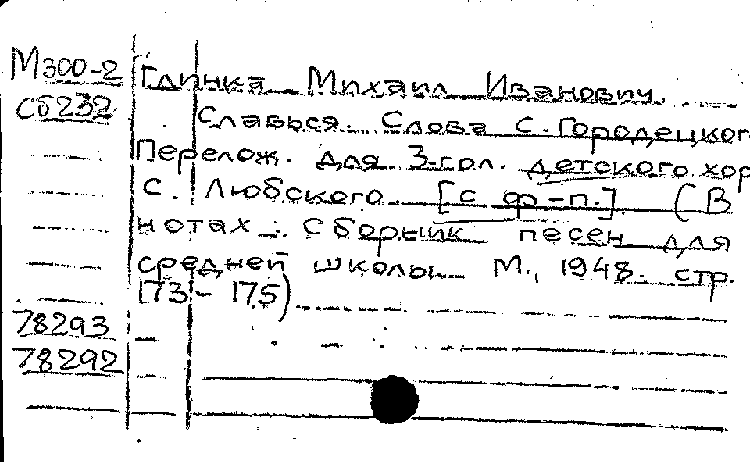 М300-2 Глинка Михаил Иванович.
Сб232 Славься. Слова С. Городецког
Перелож. для 3-гол. детского хор
С. Любского [с ф-п.] (В
нотах: Сборник песен для
средней школы. М., 1948. стр.
173-175)
78293
78292